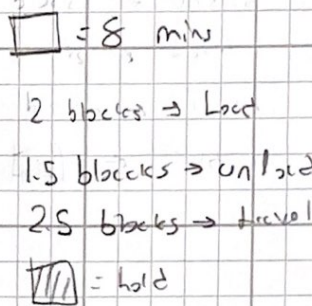 = 8 mins
2 blocks → Load
1.5 bloccks → unload
2.5 blocks → travel
= hold